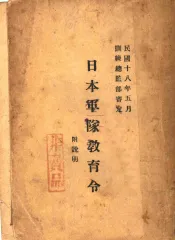 民國十八年五月
訓練總監部審定
日本軍隊教育令
附說明